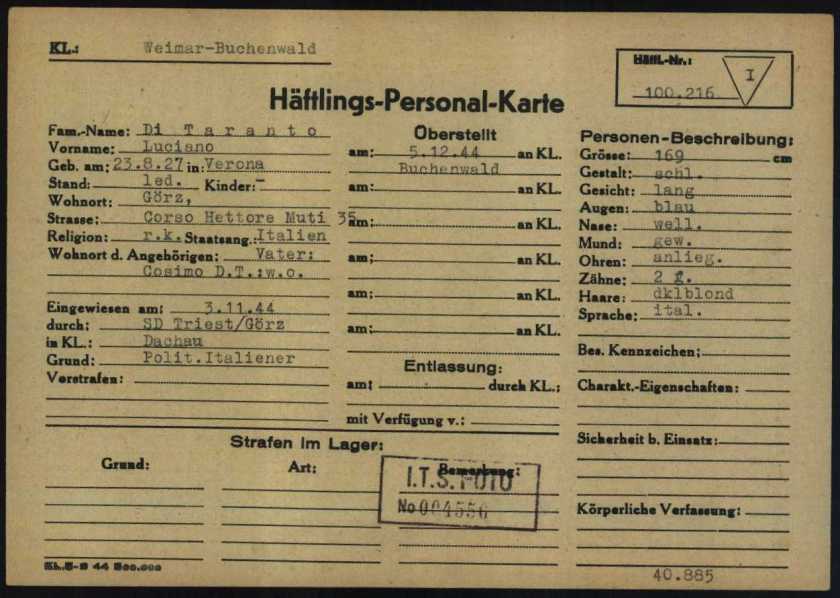 KL.: Weimar-Buchenwald
Häftl.-Nr.:
100.216
I
Häftlings-Personal-Karte
Fam.-Name: Di Taranto
Vorname: Luciano
Geb. am: 23.8.27 in: Verona
Stand: led. Kinder: -
Wohnort: Görz,
Strasse: Corso Hettore Muti 35
Religion: r.k. Staatsang.: Italien
Wohnort d. Angehörigen: Vater:
Cosimo D.T.:w.o.
Eingewiesen am: 3.11.44
durch: SD Triest/Görz
in KL.: Dachau
Grund: Polit.Italiener
Vorstrafen:
Überstellt
am: 5.12.44 an KL.
Buchenwald
am: an KL.
am: an KL.
am: an KL.
am: an KL.
am: an KL.
Entlassung:
am: durch KL.:
mit Verfügung v.:
Personen-Beschreibung:
Grösse: 169 cm
Gestalt: schl.
Gesicht: lang
Augen: blau
Nase: well.
Mund: gew.
Ohren: anlieg.
Zähne: 2
Haare: dklblond
Sprache: ital.
Bes. Kennzeichen:
Charakt.-Eigenschaften:
Sicherheit b. Einsatz:
Körperliche Verfassung:
Strafen im Lager:
Grund: Art: Bemerkung:
I.T.S. FOTO
No 004556
40.885